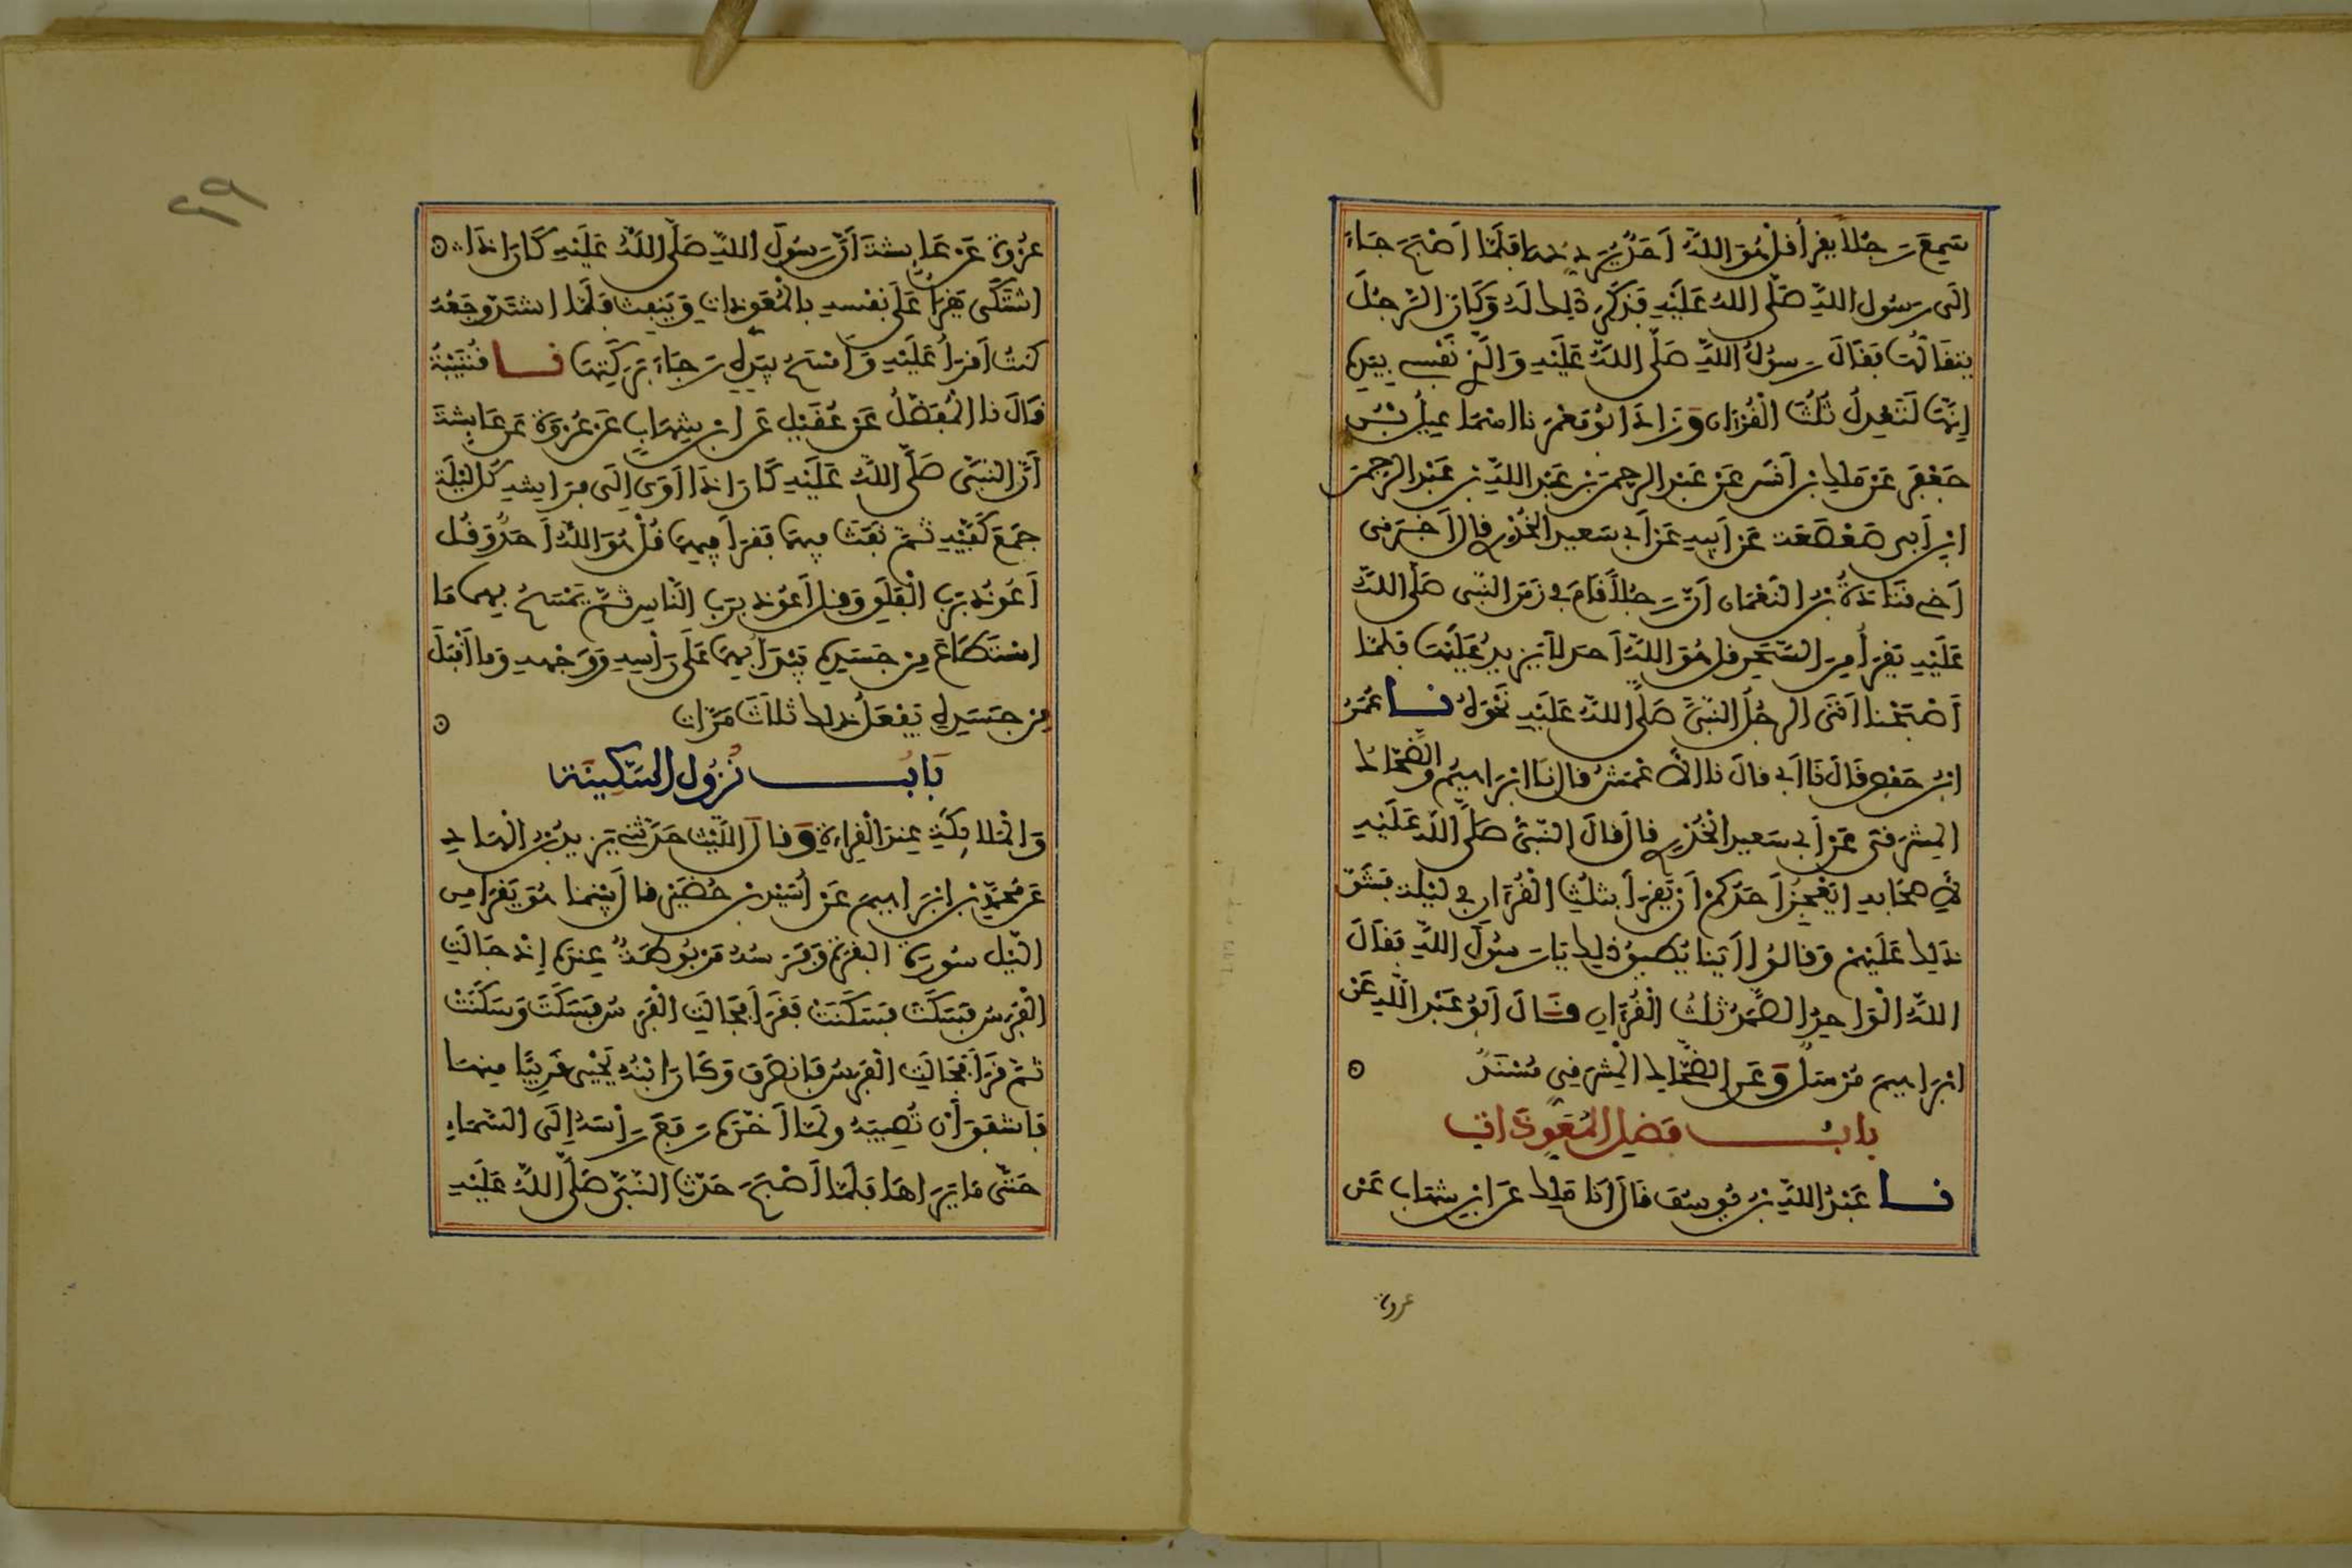 سَمِعَ رَجُلاً يَقرأ قُلْ هُوَ اللَّهُ أَحَدٌ يُرَدِّدُهَا فَلَمَّا أَصْبَحَ جَاءَ
الَى رَسُولِ اللَّهِ صَلَّى اللهُ عَلَيْهِ فَذَكَرَ ذَلِكَ لَهُ وَكَأَنَّ الرَّجُلَ
يَتَقَالُّهَا فَقَالَ رَسُولُ اللَّهِ صَلَّى اللَّهُ عَلَيْهِ وَالَّذِي نَفْسِي بِيَدِهِ
إِنَّهَا لَتَعْدِلُ ثُلُثَ الْقُرْآنِ وَزَادَ أَبُو مَعْمَرٍ نا اسْمَاعِيلُ بْنُ
جَعْفَرٍ عَنْ مَالِكِ بْنِ أَنَسٍ عَنْ عَبْدِ الرَّحْمَنِ بْنِ عَبْدِ اللَّهِ بْنِ عَبْدِ الرَّحْمَنِ
ابْنِ أَبِي صَعْصَعَةَ عَنْ أَبِيهِ عَنْ أَبِي سَعِيدٍ الْخُدْرِي قال أَخْبَرَنِي
أَخِي قَتَادَةُ بْنُ النُّعْمَانِ أَنَّ رَجُلاً قَامَ فِي زَمَنِ النَّبِيِّ صَلَّى اللَّهُ
عَلَيْهِ يَقرَأُ مِنَ السَّحَرِ قل هُوَ اللَّهُ أَحَد لَا يَزِيدُ عَلَيْهَا فَلَمَّا
أَصْبَحْنَا أَتَى الرَّجُلُ النَّبِيَّ صَلَّى اللَّهُ عَلَيْهِ نَحْوَهُ نا عُمَرُ
ابْنُ حَفْصٍ قَالَ نَا أَبِي قَالَ نا الأَعْمَشُ قال نَا ابْرَاهِيمُ وَالضَّحَّاكُ
الْمِشْرَقِي عَنْ أَبِي سَعِيدٍ الْخُدْرِي قال قَالَ النَّبِيُّ صَلَّى اللَّه عَلَيْهِ
لأَصْحَابِهِ أَيَعْجِزُ أَحَدُكُمْ أَنْ يَقرَأَ بِثُلُثِ الْقُرْآنِ فِي لَيْلَة فَشَقَّ
ذَلِكَ عَلَيْهِمْ وَقَالُوا أَيُّنَا يُطِيقُ ذَلِكَ يَا رَسُولَ اللَّهِ فَقَالَ
اللَّهُ الْوَاحِدُ الصَّمَدُ ثُلُثُ الْقُرْآنِ قَالَ أَبُو عَبْدِ اللَّهِ عَنْ
ابْرَاهِيمَ مُرْسَلٌ وَعَنِ الضَّحَّاكِ الْمِشْرَقِي مُسْنَدٌ
بابُ فَضْلِ الْمُعَوِّذَاتِ
نا عَبْدُ اللَّهِ بْنُ يُوسُفَ قَالَ أَنَا مَالِك عَنِ ابْنِ شِهَابٍ عَنْ
عروة
٤٩
عُرْوَةَ عَنْ عَائِشَةَ أَنَّ رَسُولَ اللَّهِ صَلَّى اللَّهُ عَلَيْهِ كَانَ اذَا
اشْتَكَى يَقْرَأُ عَلَى نَفْسِهِ بِالْمُعَوِّذَاتِ وَيَنْفِثُ فَلَمَّا اشْتَدَّ وَجَعُهُ
كُنْتُ أَقرَأُ عَلَيْهِ وَأَمْسَحُ بِيَدِهِ رَجَاءَ بَرَكَتِهَا نا قُتَيْبَةُ
قَالَ نا الْمُفَضَّلُ عَنْ عُقَيْلٍ عَنِ ابْنِ شِهَابٍ عَنْ عُرْوَةَ عَنْ عَائِشَةَ
أَنَّ النَّبِيَّ صَلَّى اللَّهُ عَلَيْهِ كَانَ اذَا أَوَى إِلَى فِرَاشِهِ كُلَّ لَيْلَةٍ
جَمَعَ كَفَّيْهِ ثُمَّ نَفَثَ فِيهِمَا فَقَرَأَ فِيهِمَا قُلْ هُوَ اللَّهُ أَحَدٌ وَقُل
أَعُوذُ بِرَبِّ الْفَلَقِ وَقل أَعُوذُ بِرَبِّ النَّاسِ ثُمَّ يَمْسَحُ بِهِمَا مَا
اسْتَطَاعَ مِنْ جَسَدِهِ يَبْدَأُ بِهِمَا عَلَى رَأْسِهِ وَوَجْهِهِ وَمَا أَقْبَلَ
مِنْ جَسَدِهِ يَفْعَلُ ذَلِكَ ثَلَاثَ مَرَّاتٍ
بَابُ نُزُولِ السَّكِينَةِ
وَالْمَلَائِكَةِ عِنْدَ الْقِرَاءَةِ وَقَالَ اللَّيْثُ حَدَّثَنِي يَزِيدُ بْنُ الْهَادِ
عَنْ مُحَمَّدِ بْنِ ابْرَاهِيمَ عَنْ أُسَيْدِ بْنِ حُضَيْرٍ قال بَيْنَمَا هُوَ يَقرَأ مِن
اللَّيْلِ سُورَةَ الْبَقَرَةِ وَفَرَسُهُ مَرْبُوطَةٌ عِنْدَهُ إِذْ جَالَتِ
الْفَرَسُ فَسَكَّتَ فَسَكَنَتْ فَقَرَأَ فَجَالَتِ الْفَرَسُ فَسَكَتَ وَسَكَنَتْ
ثُمَّ قَرَأَ فَجَالَتِ الْفَرَسُ فَانْصَرَفَ وَكَانَ ابْنُهُ يَحْيَى قَرِيبًا مِنْهَا
فَأَشْفَقَ أَنْ تُصِيبَهُ وَلَمَّا أَخَّرَهُ رَفَعَ رَأْسَهُ إِلَى السَّمَاءِ
حَتَّى مَا يَرَاهَا فَلَمَّا أَصْبَحَ حَدَّثَ النَّبِيَّ صَلَّى اللَّهُ عَلَيْهِ